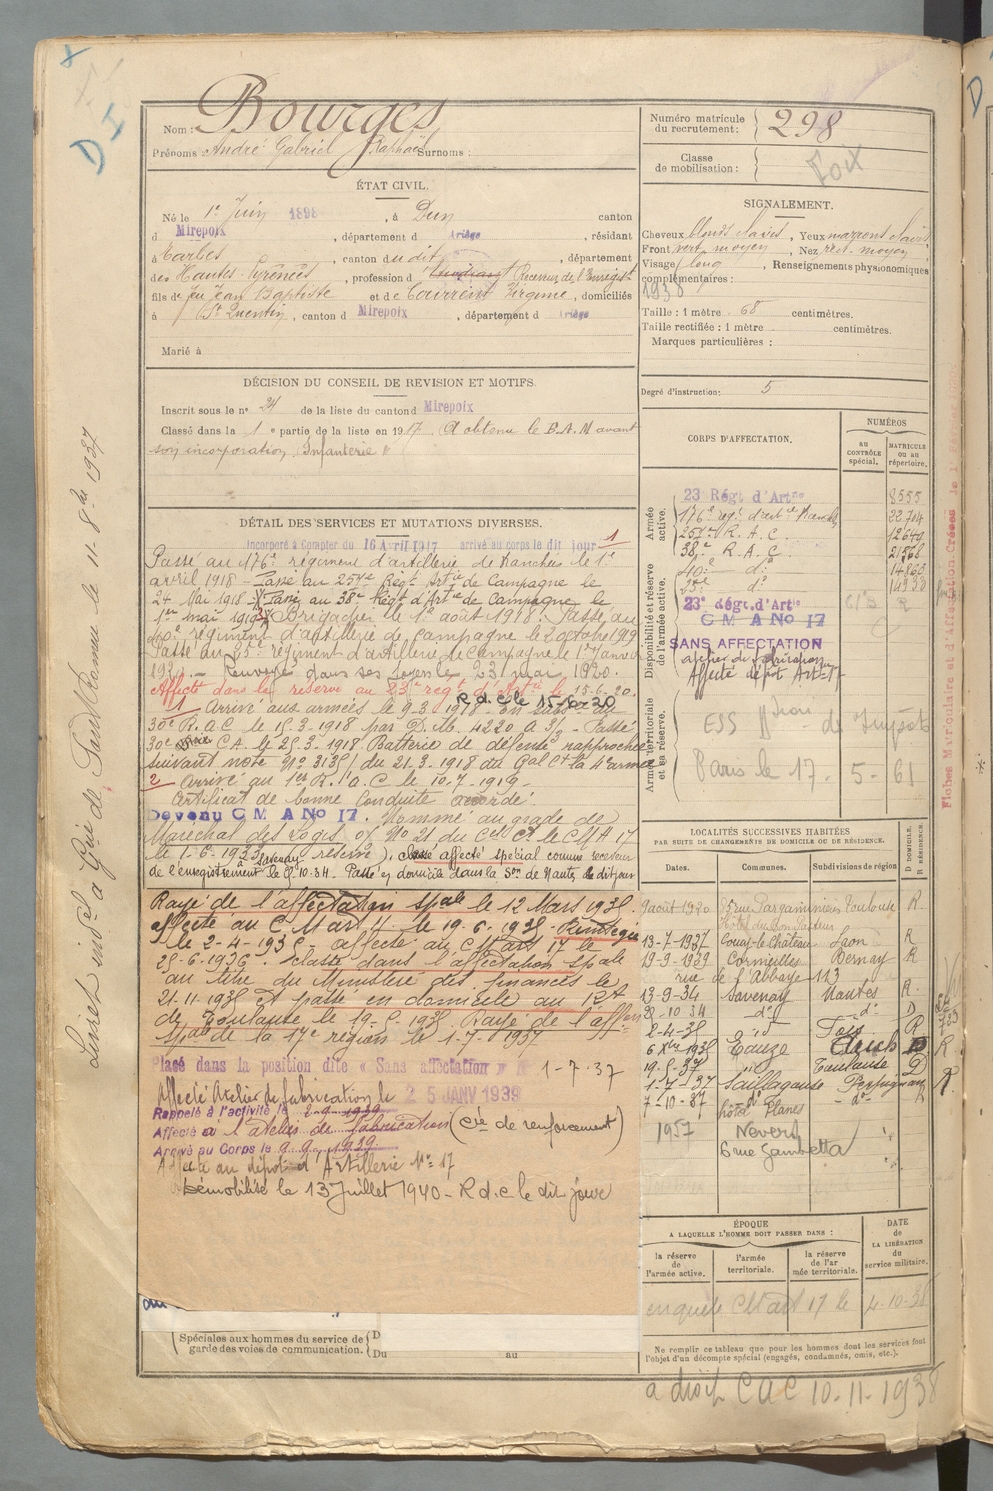 D I
Livret indel à Gie de Ford Romeu le 11-8bre 1937
Nom : Bourges
Prénoms : André Gabriel Raphaël Surnoms :
Numéro matricule du recrutement : 298
Classe de mobilisation :
Foix
ÉTAT CIVIL.
Né le 1er Juin 1898, à Dun canton
d Mirepoix, département d Ariège, résidant
à Tarbes, canton du dit, département
des Hautes-Pyrénées, profession d Etudiant Receveur de l'Enregist
fils de feu Jean Baptiste et de Courrent Virginie, domiciliés
à St Quentin, canton d Mirepoix, département d Ariège
Marié à
SIGNALEMENT.
Cheveux blonds clairs, Yeux marrons clairs,
Front vert. moyen, Nez rect. moyen
Visage long, Renseignements physionomiques
complémentaires :
1938
Taille : 1 mètre 68 centimètres.
Taille rectifiée : 1 mètre centimètres.
Marques particulières :
Degré d'instruction : 5
DÉCISION DU CONSEIL DE REVISION ET MOTIFS.
Inscrit sous le n° 24 de la liste du canton d Mirepoix
Classé dans la 1 e partie de la liste en 1917. A obtenu le B.A.M avant
son incorporation Infanterie
DÉTAIL DES SERVICES ET MUTATIONS DIVERSES.
Incorporé à Compter du 16 Avril 1917 arrivé au corps le dit jour 1
Passé au 176e régiment d'artillerie de tranchées le 1er
avril 1918 - Passé au 257e Régt Artie de Campagne le
24 Mai 1918 - Passé au 38e Régt d'Artie de Campagne le
1er mai 1919 Brigadier le 1er août 1918. Passé au
40e régiment d'artillerie de campagne le 2 octobre 1919
Passé au 25e régiment d'artillerie de campagne le 1er Janvier
1920. - Renvoyé dans ses foyers le 23 mai 1920.
Affecté dans la réserve au 23e regt d'Artie le 15-6-20.
R.d.C le
1 Arrivé aux armées le 9.3.1918 - En subsce au
30e R.A.C le 15.3.1918 par D.M. 4220 A 3/3 - Passé
30e C.A. le 25.3.1918 Batterie de défense rapprochée
suivant note N° 3135/ du 21.3.1918 du Gal Ct la 4e armée
2 - Arrivé au 1er R.A.C le 10-7-1919 -
Certificat de bonne conduite accordé.
Devenu C M A No 17. Nommé au grade de
Maréchal des Logis of No 21 du Cel Ct le CMA 17
le 1-6-1933 réserve, classé affecté spécial comme receveur
de l'enregistrement Savenay le 10.34. Passé en domicile dans la Son de Nantes le dit jour
Rayé de l'affectation spale le 12 Mars 1935.
affecté au C Mart 11 le 19.6.1935 - Réintégré
le 2-4-1935 - affecté au C Mart 17 le
25-6-1936. Classé dans l'affectation spale
au titre du Ministère des finances le
21.11.1935 et passé en domicile au Rt
de Toulouse le 19.5.1935. Rayé de l'affon
spale de la 17e région le 1-7-1937
Placé dans la position dite « Sans affectation » 1-7-37
Affecté Atelier de fabrication le 25 JANV 1939
Rappelé à l'activité le 2.9.1939
Affecté à l'atelier de fabrication (Cie de renforcement)
Arrivé au Corps le 9.9.1939
Affecté au dépôt d'Artillerie No 17
Démobilisé le 13 Juillet 1940 - R d.c le dit jour
Spéciales aux hommes du service de garde des voies de communication. D
Du au
CORPS D'AFFECTATION.
NUMÉROS
au CONTRÔLE spécial.
MATRICULE ou au répertoire.
Armée active.
23e Régt d'Artie 8555
176e regt d'artie Tranchées 22704
257e R.A.C. 12640
38e R.A.C. 21568
40e do 14866
25e do 14933
Disponibilité et réserve de l'armée active.
23e régt. d'Artie
C M A No 17
SANS AFFECTATION
atelier de fabrication
Affecté dépôt Art 17
Armée territoriale et sa réserve.
ESS de Impots
Paris le 17-5-61
LOCALITÉS SUCCESSIVES HABITÉES
PAR SUITE DE CHANGEMENTS DE DOMICILE OU DE RÉSIDENCE.
D DOMICILE. R RÉSIDENCE.
Dates. Communes. Subdivisions de région
9 août 1920 35 rue Pargaminières Toulouse R
13-7-1927 Coucy-le-Château Laon R
19-9-1929 Cormeilles Bernay R
rue de l'Abbaye 113
13-9-34 Savenay Nantes R
28-10 34 do do D
2-4-35 Foix R
6 Xbre 1935 Eauze Auch R
19-5-37 Toulouse D
1-7-37 Saillagouse Perpignan R
7-10-37 do do R
hôtel Planes
1957 Nevers
6 rue Gambetta
ÉPOQUE
A LAQUELLE L'HOMME DOIT PASSER DANS :
DATE de LA LIBÉRATION du service militaire.
la réserve de l'armée active.
l'armée territoriale.
la réserve de l'armée territoriale.
enquete CMart 17 le 4-10-38
Ne remplir ce tableau que pour les hommes dont les services font l'objet d'un décompte spécial (engagés, condamnés, omis, etc.).
a droit CAC 10-11-1938
Fiches Matriculaire et d'Affectation Créées le